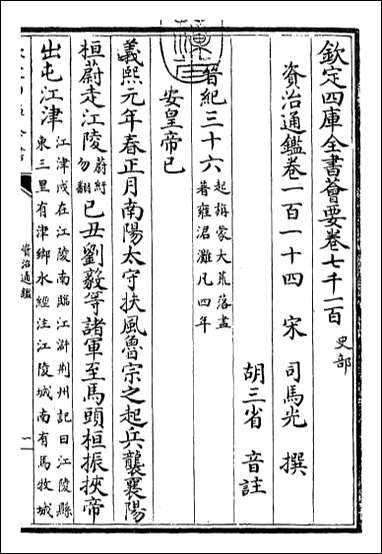 欽定四庫全書薈要卷七千一百 史部
資治通鑑卷一百一十四 宋 司馬光 撰
胡三省 音註
晉紀三十六 起旃蒙大荒落盡著雍涒灘凡四年
安皇帝己
義熙元年春正月南陽太守扶風魯宗之起兵襲襄陽
桓蔚走江陵 蔚紆勿翻 己丑劉毅等諸軍至馬頭桓振挾帝
出屯江津 江津戍在江陵南臨江滸荆州記曰江陵縣東三里有津鄉水經注江陵城南有馬牧城
資治通鑑
一